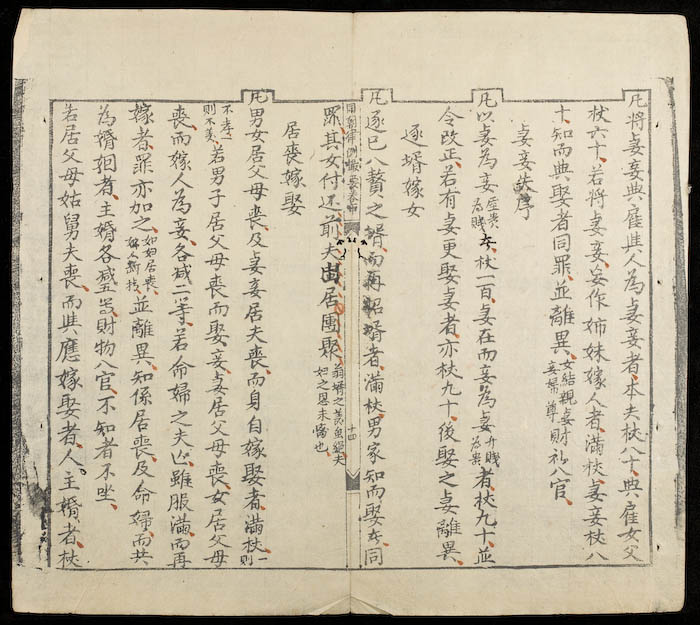 凡將妻妾典雇與人為妻妾者本夫杖八十典雇女父
杖六十若將妻妾妄作姉妹嫁人者滿杖妻妾杖八
十知而典娶者同罪並離異女結親妻妾歸尊財礼入官
妻妾失序
凡以妻為妾压贵為賤者杖一百妻在而妾為妻升賤為貴者杖九十並
令改正若有妻更娶妻者亦杖九十後娶之妻離異
逐壻嫁女
凡逐已入贅之壻而再招壻者滿杖男家知而娶者同
律例撮要
十四
罪其女付还前夫出居團聚翁壻之義虽絕夫妇之恩未斷也
居喪嫁娶
凡男女居父母喪及妻妾居夫喪而身自嫁娶者滿杖一則
不孝一則不義若男子居父母喪而娶妾妻居父母喪女居父母
喪而嫁人為妾各减二等若命婦之夫亾雖服滿而再
嫁者罪亦加之如妇居喪嫁人並離異知係居喪及命婦而共
為婚姻者主婚各减五等財物入官不知者不坐
若居父母姑舅夫喪而與應嫁娶者人主婚者杖